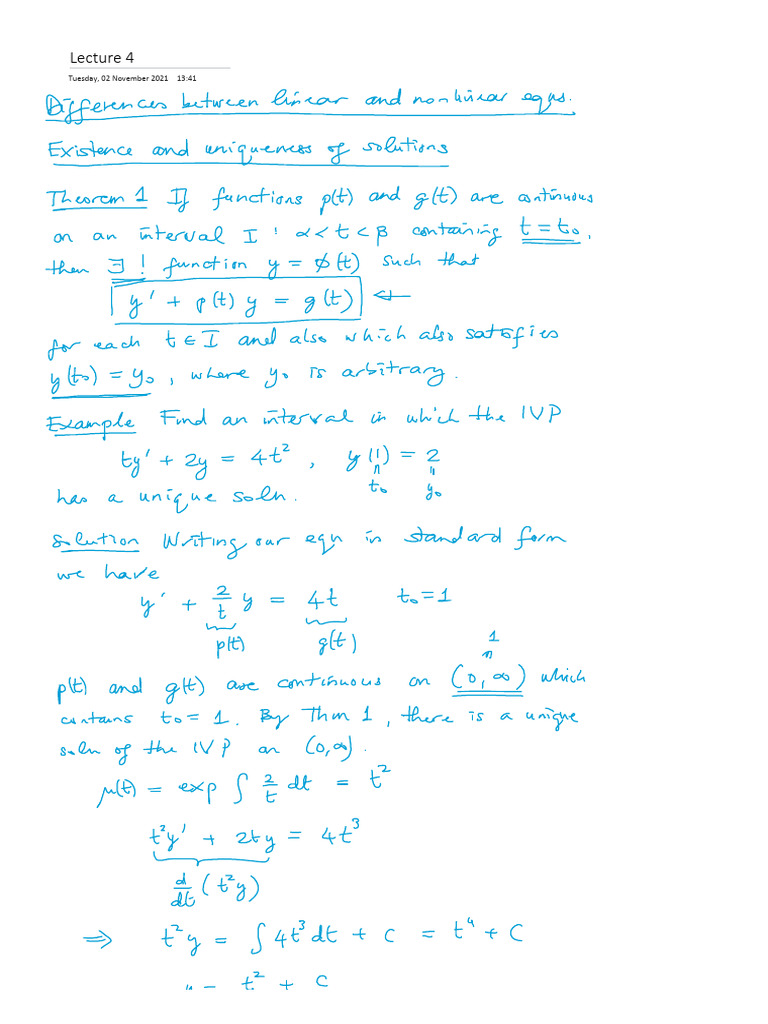 Lecture 4
Tuesday, 02 November 2021 13:41
Differences between linear and nonlinear eqns.
Existence and uniqueness of solutions
Theorem 1 If functions p(t) and g(t) are continuous
on an interval I : α < t < β containing t = t₀,
then ∃! function y = ϕ(t) such that
y' + p(t) y = g(t) ←
for each t ∈ I and also which also satisfies
y(t₀) = y₀, where y₀ is arbitrary.
Example Find an interval in which the IVP
ty' + 2y = 4t², y(1) = 2
" "
t₀ y₀
has a unique soln.
Solution Writing our eqn in standard form
we have
y' + 2/t y = 4t t₀=1
p(t) g(t)
1
p(t) and g(t) are continuous on (0,∞) which
contains t₀ = 1. By Thm 1, there is a unique
soln of the IVP on (0,∞).
μ(t) = exp ∫ 2/t dt = t²
t²y' + 2ty = 4t³
d/dt (t²y)
⇒ t²y = ∫ 4t³ dt + c = t⁴ + C
= t² + c